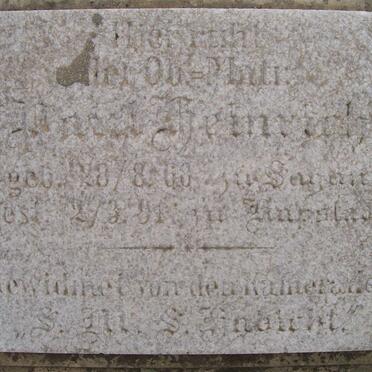 Hier ruht
der Ob=Matr.
Paul Heinrich
geb. 20/8. 66 zu Sagan
gest. 2/3. 91. zu Kapstadt
Gewidmet von den Kameraden
„S. M. S. Habicht."